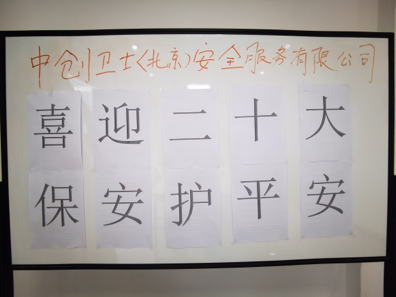 中创卫士(北京)安全服务有限公司
喜迎二十大
保安护平安